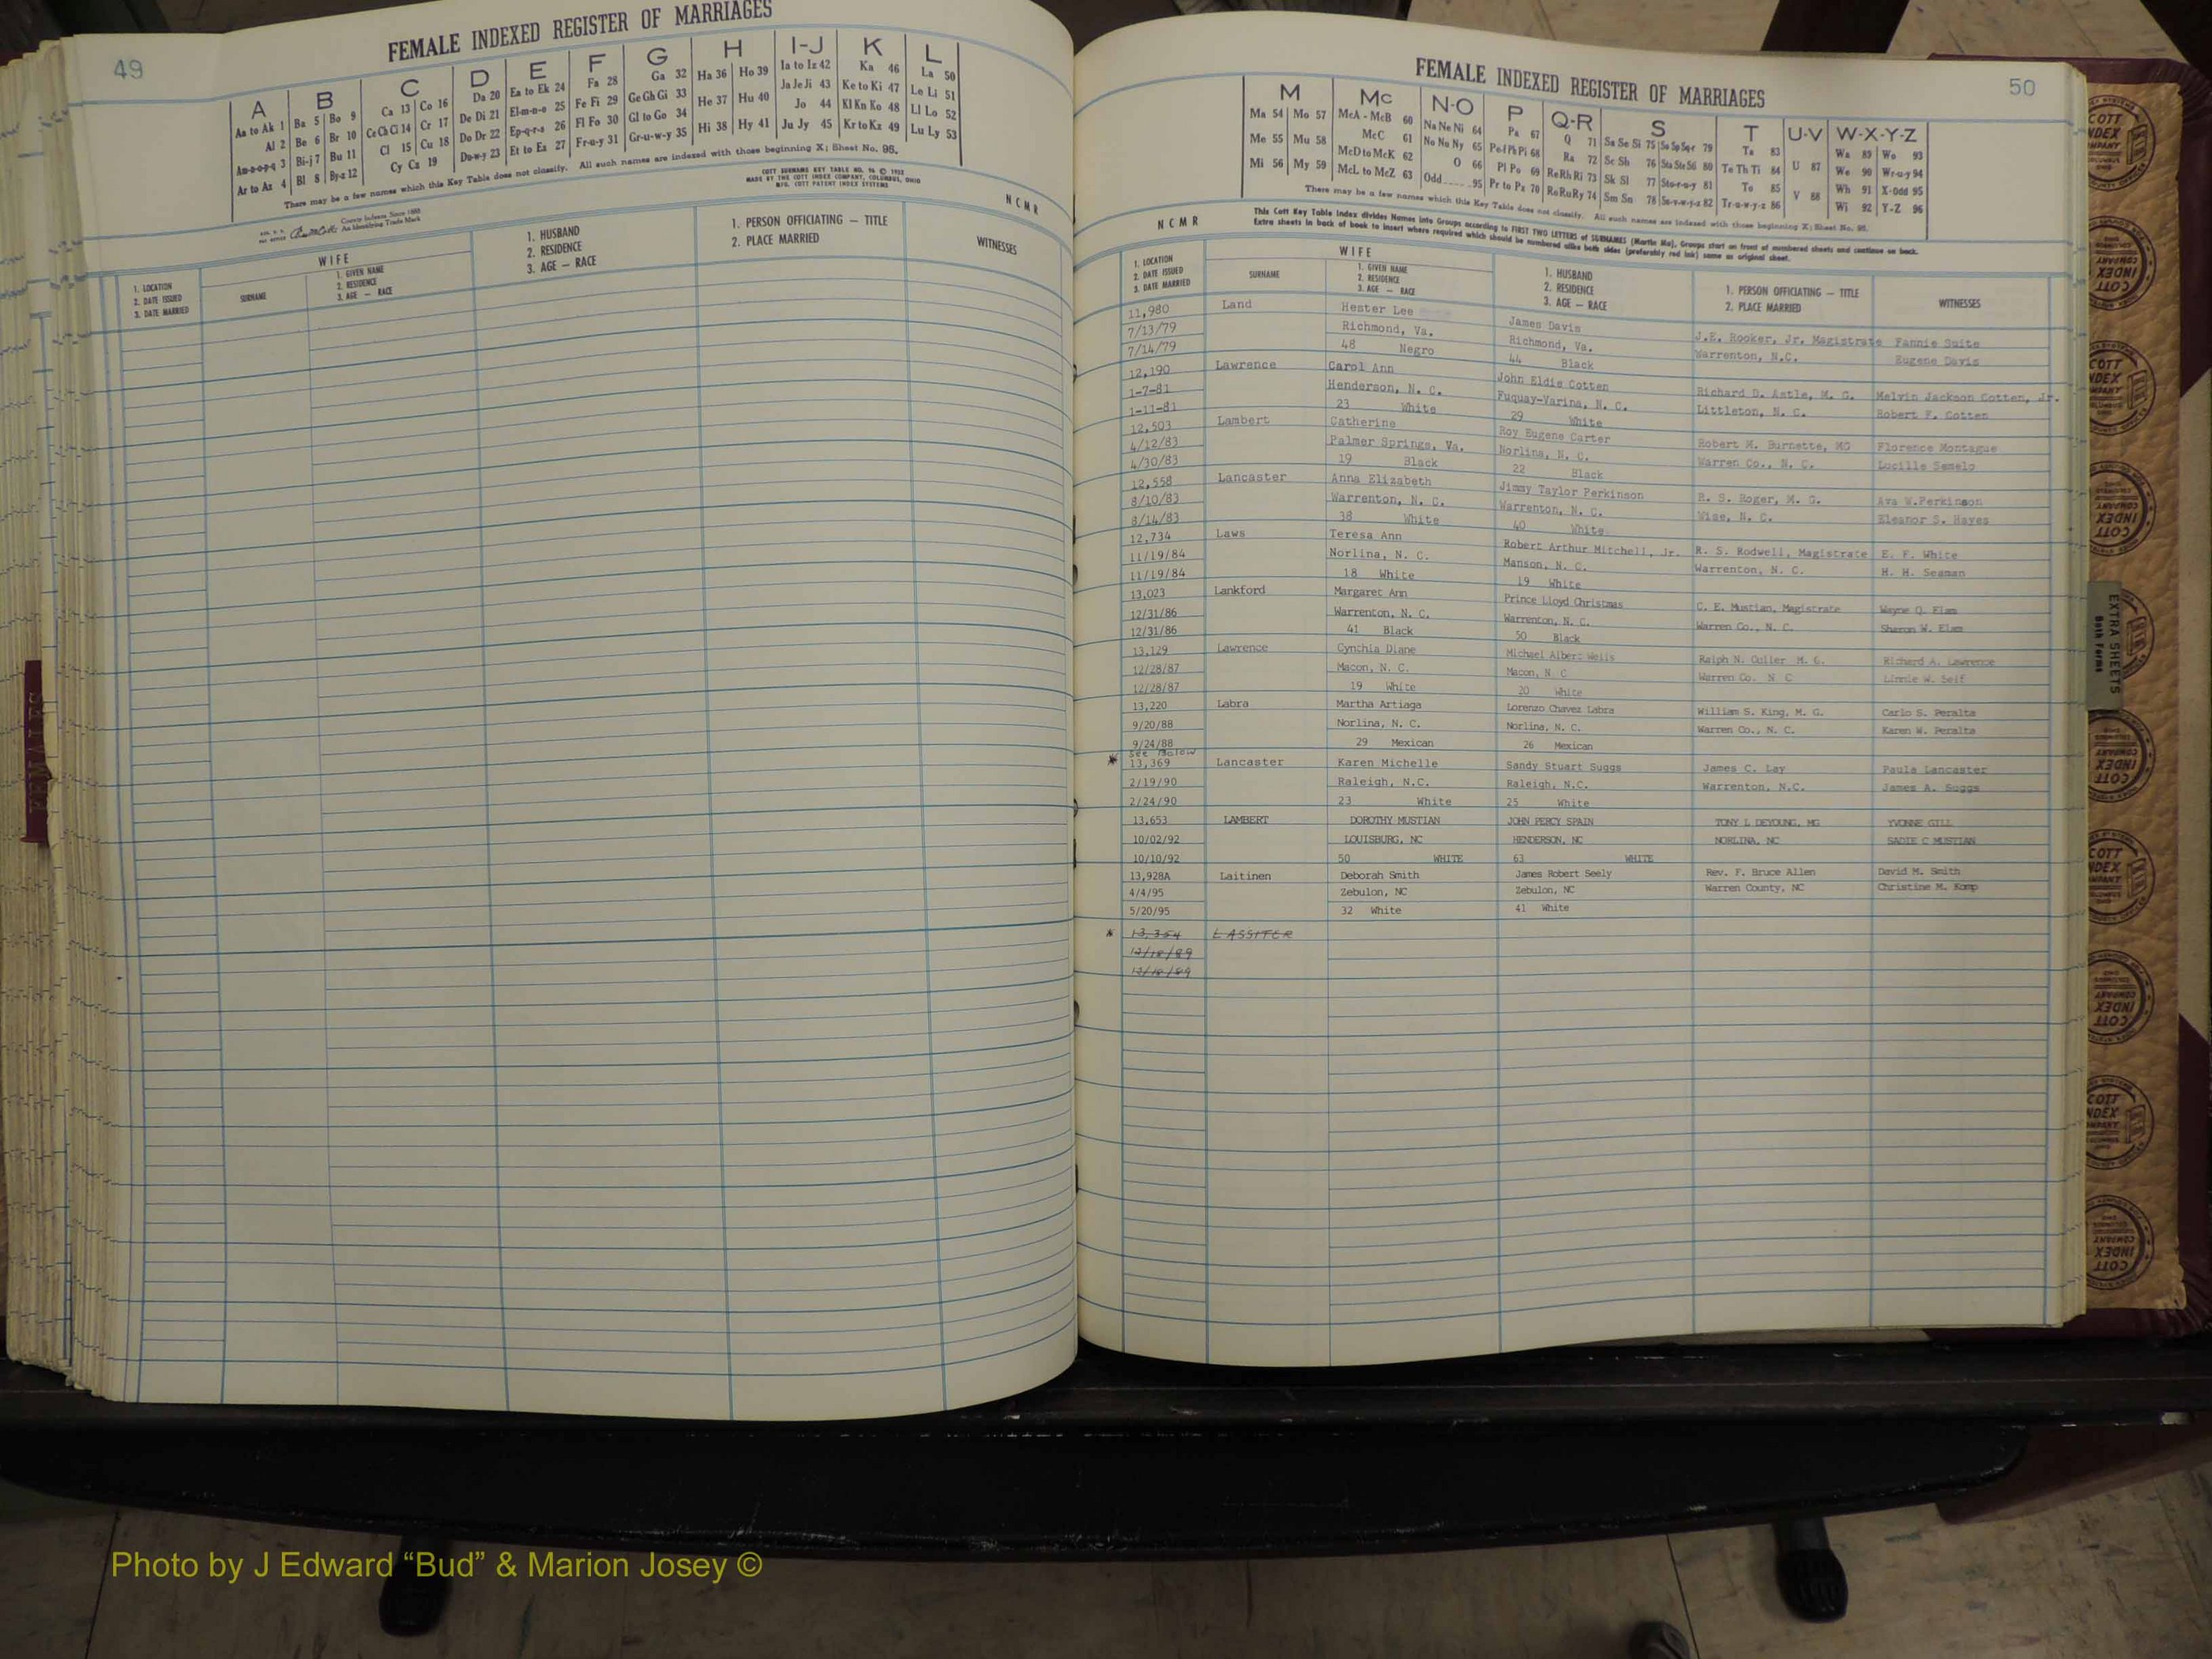 49
FEMALE INDEXED REGISTER OF MARRIAGES
A B C D E F G H I-J K L
Aa to Ak 1 Ba 5 Bo 9 Ca 13 Co 16 Da 20 Ea to Ek 24 Fa 28 Ga 32 Ha 36 Ho 39 Ia to Iz 42 Ka 46 La 50
Al 2 Be 6 Br 10 Ce Ch Ci 14 Cr 17 De Di 21 El-m-n-o 25 Fe Fi 29 Ge Gh Gi 33 He 37 Hu 40 Ja Je Ji 43 Ke to Ki 47 Le Li 51
Am-n-o-p-q 3 Bi-j 7 Bu 11 Cl 15 Cu 18 Do Dr 22 Ep-q-r-s 26 Fl Fo 30 Gl to Go 34 Hi 38 Hy 41 Jo 44 Kl Kn Ko 48 Ll Lo 52
Ar to Az 4 Bl 8 By-z 12 Cy Cz 19 Du-w-y 23 Et to Ez 27 Fr-u-y 31 Gr-u-w-y 35 Ju Jy 45 Kr to Kz 49 Lu Ly 53
There may be a few names which this Key Table does not classify. All such names are indexed with those beginning X; Sheet No. 95.
COTT SURNAME KEY TABLE NO. 96 © 1952
MADE BY THE COTT INDEX COMPANY, COLUMBUS, OHIO
MFG. COTT PATENT INDEX SYSTEMS
County Indexes Since 1888
An Identifying Trade Mark
N C M R
1. LOCATION
2. DATE ISSUED
3. DATE MARRIED
WIFE
SURNAME
1. GIVEN NAME
2. RESIDENCE
3. AGE — RACE
1. HUSBAND
2. RESIDENCE
3. AGE — RACE
1. PERSON OFFICIATING — TITLE
2. PLACE MARRIED
WITNESSES
50
FEMALE INDEXED REGISTER OF MARRIAGES
M Mc N-O P Q-R S T U-V W-X-Y-Z
Ma 54 Mo 57 McA - McB 60 Na Ne Ni 64 Pa 67 Q 71 Sa Se Si 75 So Sp Sq-r 79 Ta 83 U 87 Wa 89 Wo 93
Me 55 Mu 58 McC 61 No Nu Ny 65 Pe-f Ph Pi 68 Ra 72 Sc Sh 76 Sta Ste Sti 80 Te Th Ti 84 V 88 We 90 Wr-u-y 94
Mi 56 My 59 McD to McK 62 O 66 Pl Po 69 Re Rh Ri 73 Sk Sl 77 Sto-r-u-y 81 To 85 Wh 91 X-Odd 95
McL to McZ 63 Odd 95 Pr to Pz 70 Ro Ru Ry 74 Sm Sn 78 Su-v-w-y-z 82 Tr-u-w-y-z 86 Wi 92 Y-Z 96
There may be a few names which this Key Table does not classify. All such names are indexed with those beginning X; Sheet No. 95.
This Cott Key Table Index divides Names into Groups according to FIRST TWO LETTERS of SURNAMES (Martin Ma), Groups start on front of numbered sheets and continue on back.
Extra sheets in back of book to insert where required which should be numbered alike both sides (preferably red ink) same as original sheet.
N C M R
1. LOCATION
2. DATE ISSUED
3. DATE MARRIED
WIFE
SURNAME
1. GIVEN NAME
2. RESIDENCE
3. AGE — RACE
1. HUSBAND
2. RESIDENCE
3. AGE — RACE
1. PERSON OFFICIATING — TITLE
2. PLACE MARRIED
WITNESSES
11,980 Land Hester Lee James Davis J.E. Rooker, Jr. Magistrate Fannie Suite
7/13/79 Richmond, Va. Richmond, Va. Warrenton, N.C. Eugene Davis
7/14/79 48 Negro 44 Black
12,190 Lawrence Carol Ann John Eldis Cotten Richard D. Astle, M. G. Melvin Jackson Cotten, Jr.
1-7-81 Henderson, N. C. Fuquay-Varina, N. C. Littleton, N. C. Robert F. Cotten
1-11-81 23 White 29 White
12,503 Lambert Catherine Roy Eugene Carter Robert M. Burnette, MG Florence Montague
4/12/83 Palmer Springs, Va. Norlina, N. C. Warren Co., N. C. Lucille Semelo
4/30/83 19 Black 22 Black
12,558 Lancaster Anna Elizabeth Jimmy Taylor Perkinson R. S. Roger, M. G. Ava W.Perkinson
8/10/83 Warrenton, N. C. Warrenton, N. C. Wise, N. C. Eleanor S. Hayes
8/14/83 38 White 40 White
12,734 Laws Teresa Ann Robert Arthur Mitchell, Jr. R. S. Rodwell, Magistrate E. F. White
11/19/84 Norlina, N. C. Manson, N. C. Warrenton, N. C. H. H. Seaman
11/19/84 18 White 19 White
13,023 Lankford Margaret Ann Prince Lloyd Christmas C. E. Mustian, Magistrate Wayne Q. Elam
12/31/86 Warrenton, N. C. Warrenton, N. C. Warren Co., N. C. Sharon W. Elam
12/31/86 41 Black 50 Black
13,129 Lawrence Cynthia Diane Michael Albert Wells Ralph N. Culler M. G. Richard A. Lawrence
12/28/87 Macon, N. C. Macon, N. C Warren Co. N C Linnie W. Seif
12/28/87 19 White 20 White
13,220 Labra Martha Artiaga Lorenzo Chavez Labra William S. King, M. G. Carlo S. Peralta
9/20/88 Norlina, N. C. Norlina, N. C. Warren Co., N. C. Karen W. Peralta
9/24/88 29 Mexican 26 Mexican
See Below
* 13,369 Lancaster Karen Michelle Sandy Stuart Suggs James C. Lay Paula Lancaster
2/19/90 Raleigh, N.C. Raleigh, N.C. Warrenton, N.C. James A. Suggs
2/24/90 23 White 25 White
13,653 LAMBERT DOROTHY MUSTIAN JOHN PERCY SPAIN TONY L DEYOUNG, MG YVONNE GILL
10/02/92 LOUISBURG, NC HENDERSON, NC NORLINA, NC SADIE C MUSTIAN
10/10/92 50 WHITE 63 WHITE
13,928A Laitinen Deborah Smith James Robert Seely Rev. F. Bruce Allen David M. Smith
4/4/95 Zebulon, NC Zebulon, NC Warren County, NC Christine M. Komp
5/20/95 32 White 41 White
* 13,354 LASSITER
12/18/89
12/18/89
EXTRA SHEETS
Both Forms
COTT INDEX COMPANY
Photo by J Edward “Bud” & Marion Josey ©